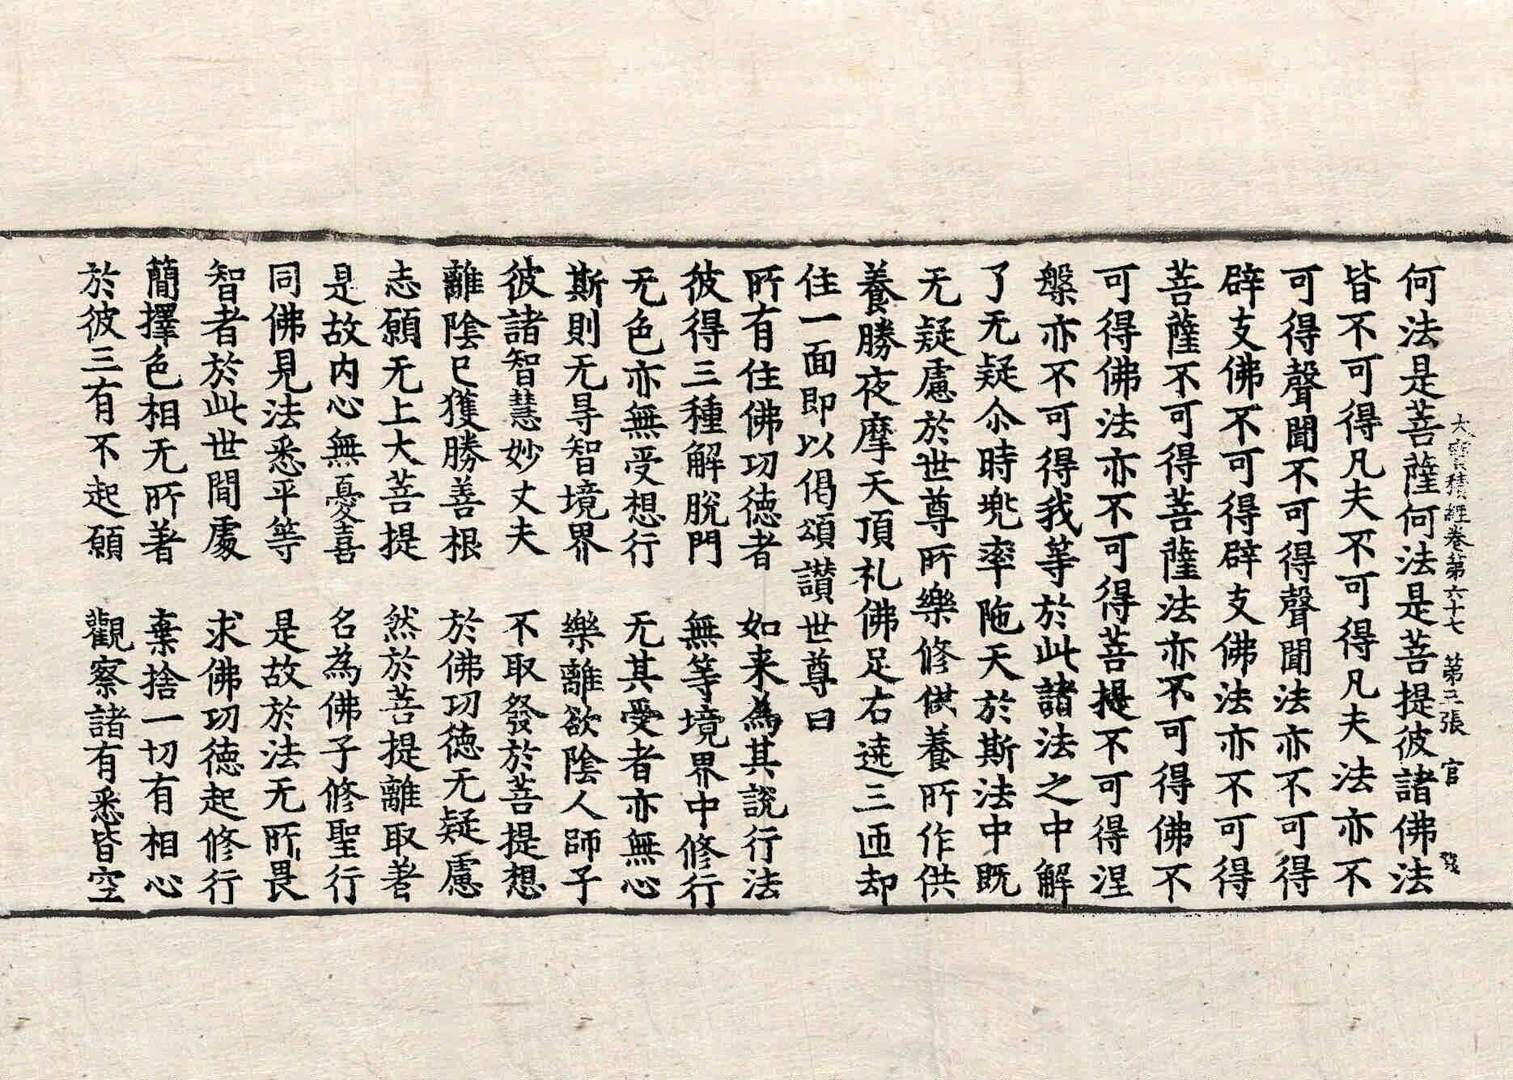 大寶積經卷第六十七 第三張 官
何法是菩薩何法是菩提彼諸佛法
皆不可得凡夫不可得凡夫法亦不
可得聲聞不可得聲聞法亦不可得
辟支佛不可得辟支佛法亦不可得
菩薩不可得菩薩法亦不可得佛不
可得佛法亦不可得菩提不可得涅
槃亦不可得我等於此諸法之中解
了无疑尒時兜率陁天於斯法中既
无疑慮於世尊所樂修供養所作供
養勝夜摩天頂礼佛足右遶三迊却
住一面即以偈頌讃世尊曰
所有住佛功德者 如来為其說行法
彼得三種解脫門 無等境界中修行
无色亦無受想行 无其受者亦無心
斯則无㝵智境界 樂離欲陰人師子
彼諸智慧妙丈夫 不取發於菩提想
離陰已獲勝善根 於佛功德无疑慮
志願无上大菩提 然於菩提離取著
是故内心無憂喜 名為佛子修聖行
同佛見法悉平等 是故於法无所畏
智者於此世間處 求佛功德起修行
簡擇色相无所著 棄捨一切有相心
於彼三有不起願 觀察諸有悉皆空